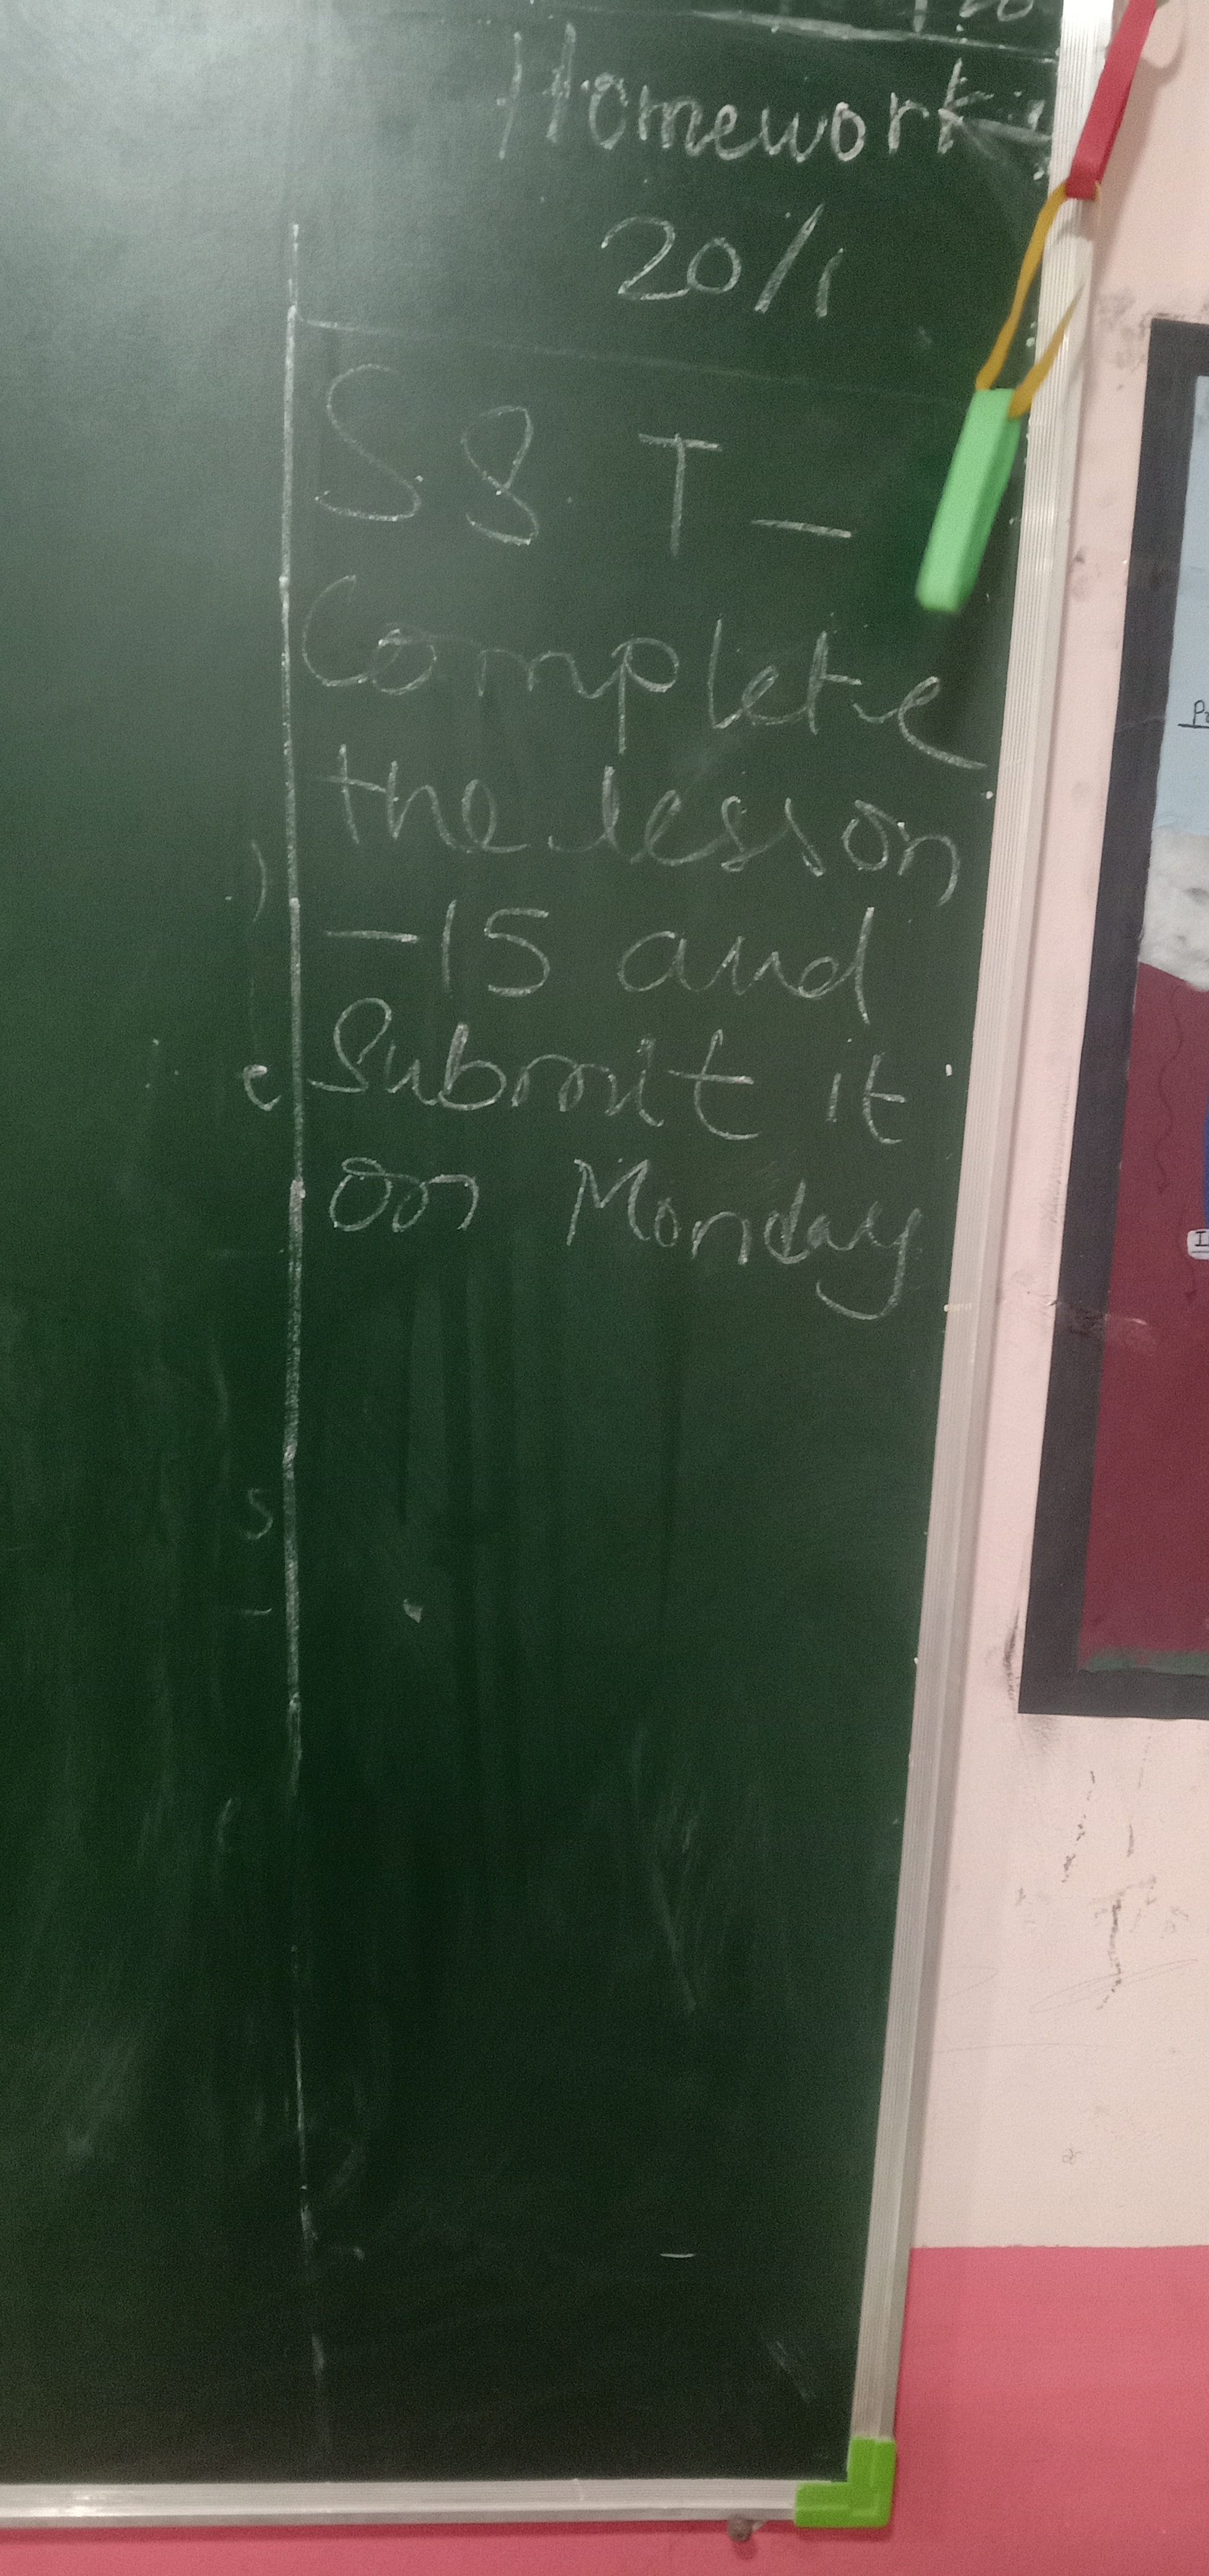 Homework:
20/1
S8 T -
Complete
the lesson
-15 and
Submit it
on Monday